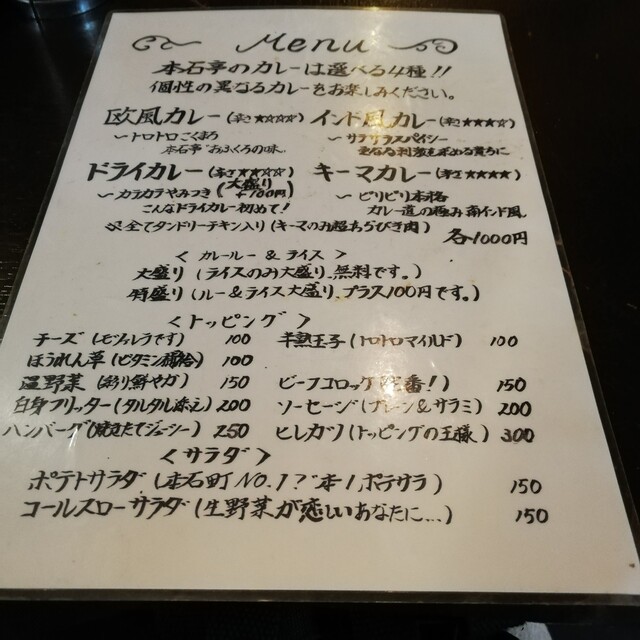 Menu
本石亭のカレーは選べる4種!!
個性の異なるカレーをお楽しみください。
欧風カレー(辛さ★☆☆☆☆) インド風カレー(辛さ★★★★☆)
〜トロトロこくまろ 〜サラサラスパイシー
本石亭"おふくろの味" 更なる刺激を求める貴方に
ドライカレー(辛さ★★☆☆☆) キーマカレー(辛さ★★★★)
〜カラカラやみつき(大盛り+100円) 〜ビリビリ本格
こんなドライカレー初めて! カレー道の極み 南インド風
全てタンドリーチキン入り(キーマのみ超あらびき肉)
各1000円
<カレールー&ライス>
大盛り(ライスのみ大盛り、無料です。)
特盛り(ルー&ライス大盛り、プラス100円です。)
<トッピング>
チーズ(モツァレラです) 100 半熟玉子(トロトロマイルド) 100
ほうれん草(ビタミン補給) 100
温野菜(彩り鮮やか) 150 ビーフコロッケ(定番!) 150
白身フリッター(タルタル添え) 200 ソーセージ(プレーン&サラミ) 200
ハンバーグ(焼きたてジューシー) 250 ヒレカツ(トッピングの王様) 300
<サラダ>
ポテトサラダ(本石町NO.1?本1,ポテサラ) 150
コールスローサラダ(生野菜が恋しいあなたに...) 150